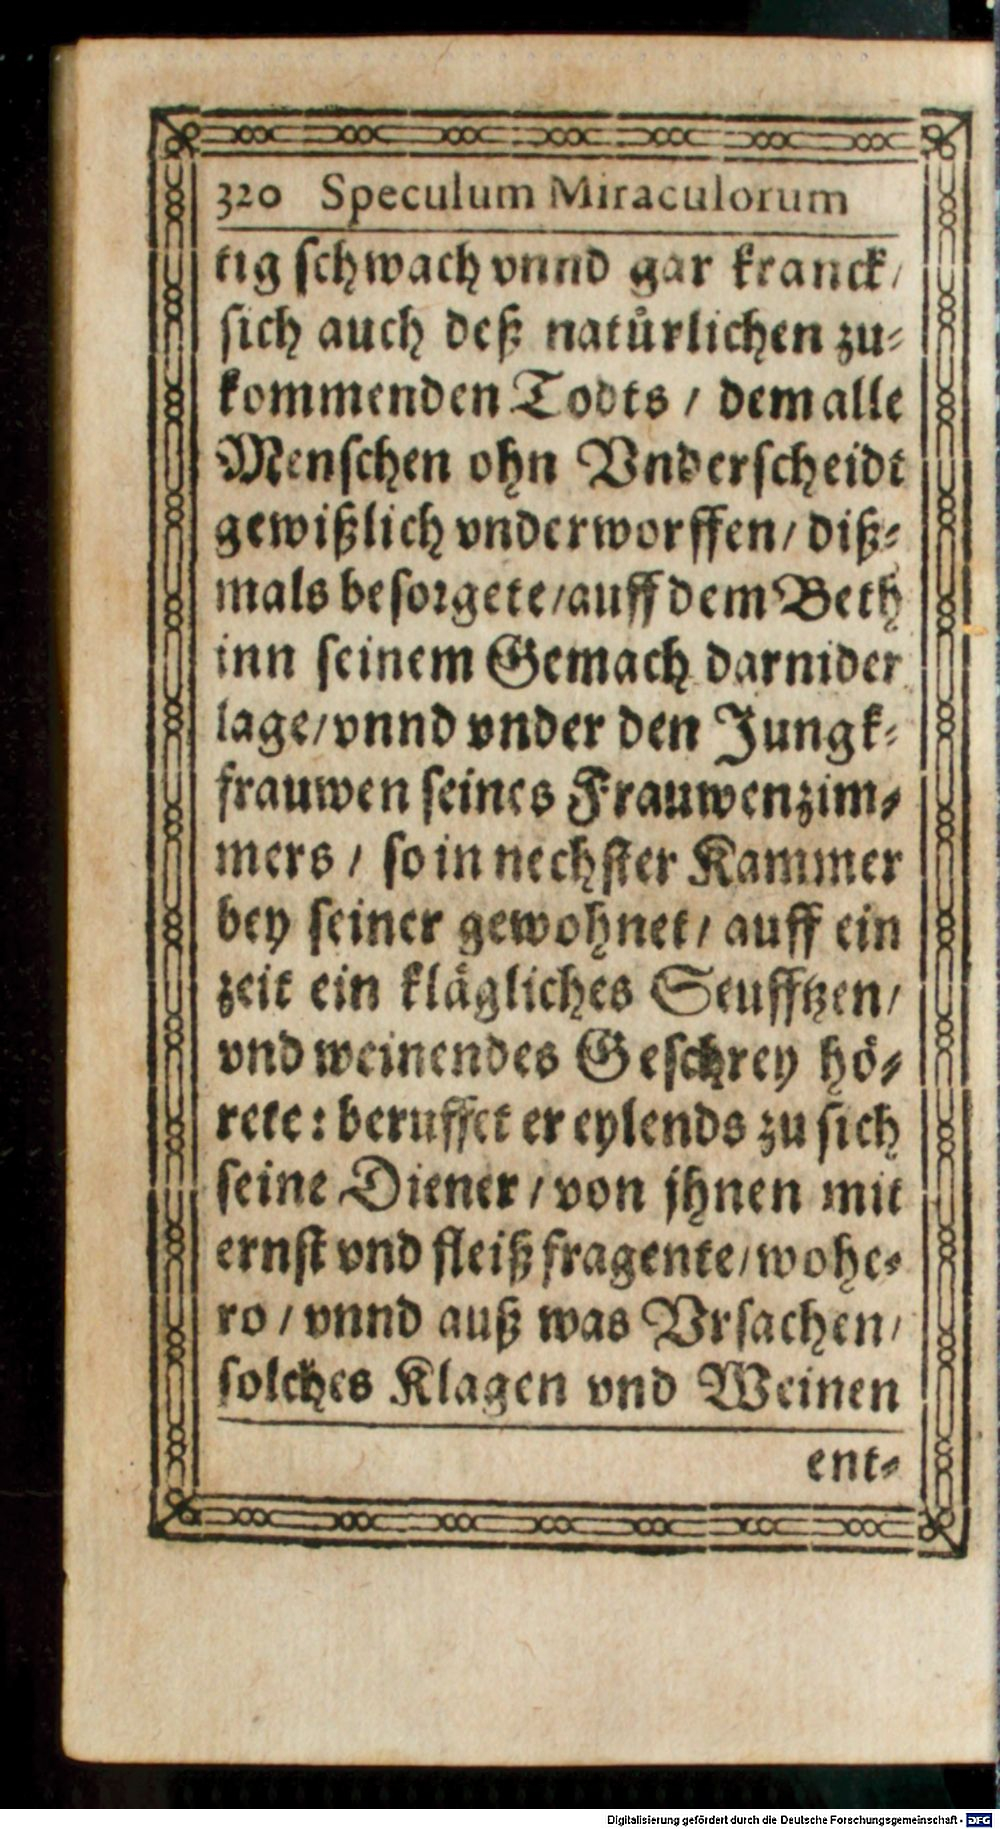 320 Speculum Miraculorum
tig schwach vnnd gar kranck/
sich auch deß natuͤrlichen zu-
kommenden Todts / dem alle
Menschen ohn Vnderscheidt
gewißlich vnderworffen/ diß-
mals besorgete/auff dem Beth
inn seinem Gemach darnider
lage/vnnd vnder den Jungk-
frauwen seines Frauwenzim-
mers / so in nechster Kammer
bey seiner gewohnet/ auff ein
zeit ein klaͤgliches Seufftzen/
vnd weinendes Geschrey hoͤ-
rete: beruffet er eylends zu sich
seine Diener / von jhnen mit
ernst vnd fleiß fragente/wohe-
ro / vnnd auß was Vrsachen/
solches Klagen vnd Weinen
ent-
Digitalisierung gefördert durch die Deutsche Forschungsgemeinschaft - DFG